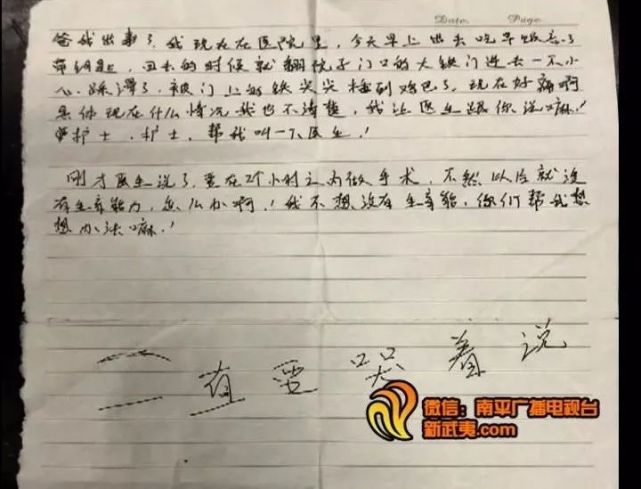 Date. Page.
爸我出事了，我现在在医院里，今天早上出去吃早饭忘了
带钥匙，回去的时候就翻院子门口的大铁门进去一不小
心踩滑了，被门上的铁尖尖捅到鸡巴了，现在好痛啊
具体现在什么情况我也不清楚，我让医生跟你说嘛！
护士，护士，帮我叫一下医生！
刚才医生说了，要在2个小时之内做手术，不然以后就没
有生育能力，怎么办啊！我不想没有生育能，你们帮我想
想办法嘛！
一直要哭着说
微信：南平广播电视台
新武夷.com